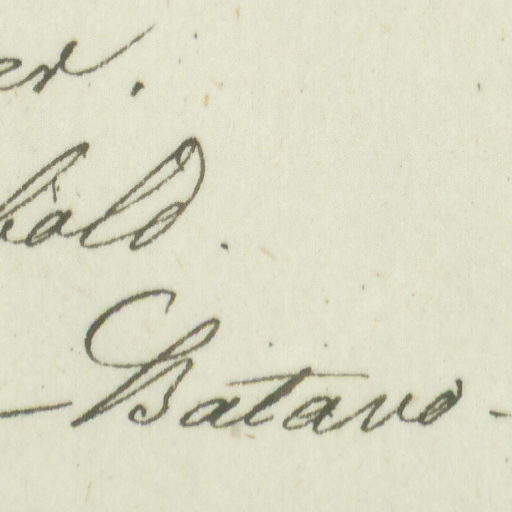 er.
bald.
- Batavo -